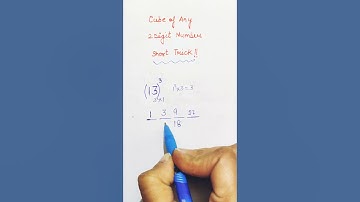 Cube of Any
2 Digit Numbers
Short Trick!!
(13)³ 1×3 = 3
1 3 9 27
18